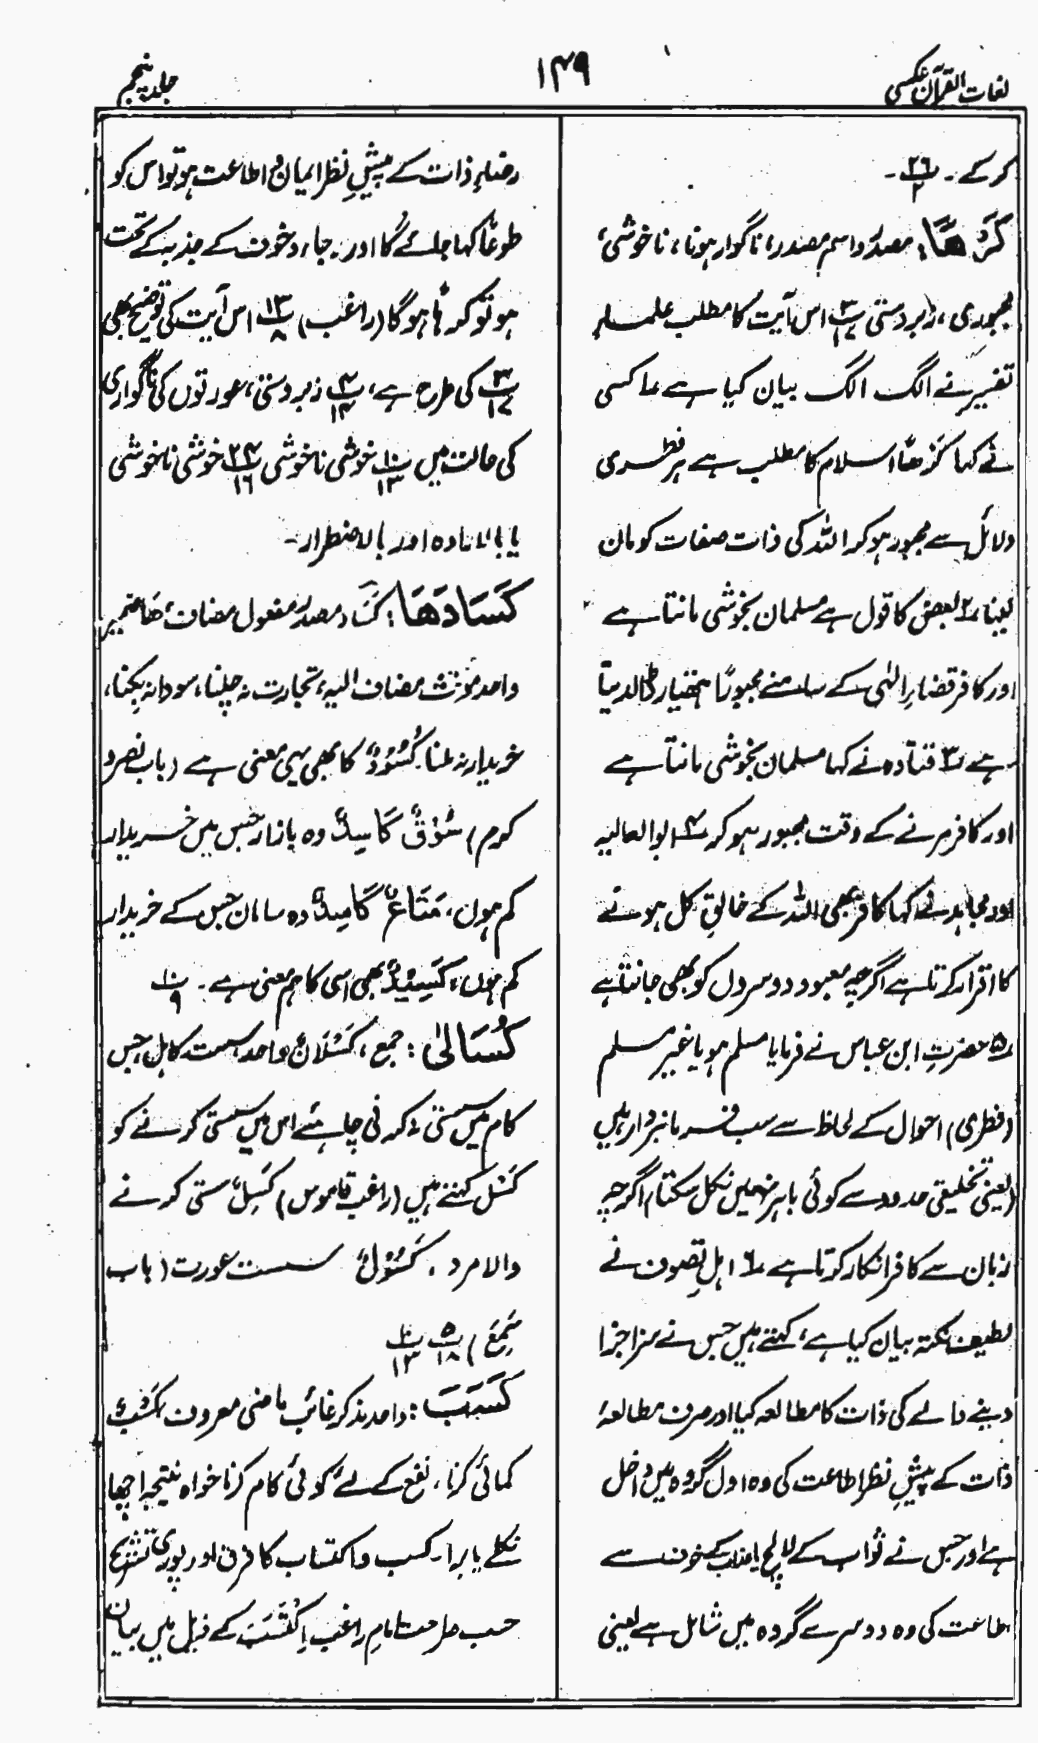 لغات القرآن عکسی
۱۴۹
جلد پنجم
کرکے۔ پ۲۶/۲۔
کَرْھًا: مصدر و اسم مصدر، ناگوار ہونا، ناخوشی،
مجبوری، زبردستی پ۳/۱۷ اس آیت کا مطلب علماء
تفسیر نے الگ الگ بیان کیا ہے ۱ کسی
نے کہا کَرْھًا اسلام کا مطلب ہے ہر فطری
دلائل سے مجبور ہو کر اللہ کی ذات صفات کو مان
لینا، ۲ بعض کا قول ہے مسلمان بخوشی مانتا ہے
اور کافر قضاءِ الٰہی کے سامنے مجبورًا ہتھیار ڈالدیتا
ہے، ۳ قتادہ نے کہا مسلمان بخوشی مانتا ہے
اور کافر مرنے کے وقت مجبور ہو کر ۴ ابوالعالیہ
اور مجاہد نے کہا کافر بھی اللہ کے خالقِ کل ہونے
کا اقرار کرتا ہے اگرچہ معبود دوسروں کو بھی جانتا ہے
۵ حضرت ابن عباس نے فرمایا مسلم ہو یا غیر مسلم
(فطری) احوال کے لحاظ سے سب فرمانبردار ہیں
(یعنی تخلیقی حدود سے کوئی باہر نہیں نکل سکتا) اگرچہ
زبان سے کافر انکار کرتا ہے ۶ اہل تصوف نے
لطیف نکتہ بیان کیا ہے، کہتے ہیں جس نے سزا جزا
دینے والے کی ذات کا مطالعہ کیا اور صرف مطالعۂ
ذات کے پیشِ نظر اطاعت کی وہ اول گروہ میں داخل
ہے اور جس نے ثواب کے لالچ یا عذاب کے خوف سے
طاعت کی وہ دوسرے گروہ میں شامل ہے یعنی
رضاءِ ذات کے پیشِ نظر ایمان و اطاعت ہو تو اس کو
طوعًا کہا جائے گا اور رجاء و خوف کے جذبہ کے تحت
ہو تو کرہًا ہو گا (راغب) پ۱۳/۸ اس آیت کی توضیح بھی
پ۳/۱۷ کی طرح ہے، پ۴/۱۴ زبردستی، عورتوں کی ناگواری
کی حالت میں پ۱۰/۱۳ خوشی ناخوشی پ۲۴/۱۶ خوشی ناخوشی
یا بالارادہ اور بالاضطرار۔
کَسَادَھَا: کساد مصدر مفعول مضاف، ھا ضمیر
واحد مؤنث مضاف الیہ، تجارت نہ چلنا، سودا نہ بکنا،
خریدار نہ ملنا کُسُوْدٌ کا بھی یہی معنی ہے (باب نصر و
کرم) سُوْقٌ کَاسِدٌ وہ بازار جس میں خریدار
کم ہوں، مَتَاعٌ کَاسِدٌ وہ سامان جس کے خریدار
کم ہوں، کَسِیْدٌ بھی اسی کا ہم معنی ہے۔ پ۱۰/۹
کُسَالیٰ: جمع، کَسْلَانُ واحد، سست کاہل، جس
کام میں سستی نہ کرنی چاہئے اس میں سستی کرنے کو
کَسَل کہتے ہیں (راغب قاموس) کَسِلٌ سستی کرنے
والا مرد، کَسُوْلٌ سست عورت (باب
سَمِعَ) پ۵/۱۸ پ۱۰/۱۳
کَسَبَ: واحد مذکر غائب ماضی معروف، کَسْبٌ
کمائی کرنا، نفع کے لئے کوئی کام کرنا خواہ نتیجہ اچھا
نکلے یا برا۔ کسب و اکتساب کا فرق اور پوری تشریح
حسب صراحت امام راغب اِکْتَسَبَ کے ذیل میں بیان